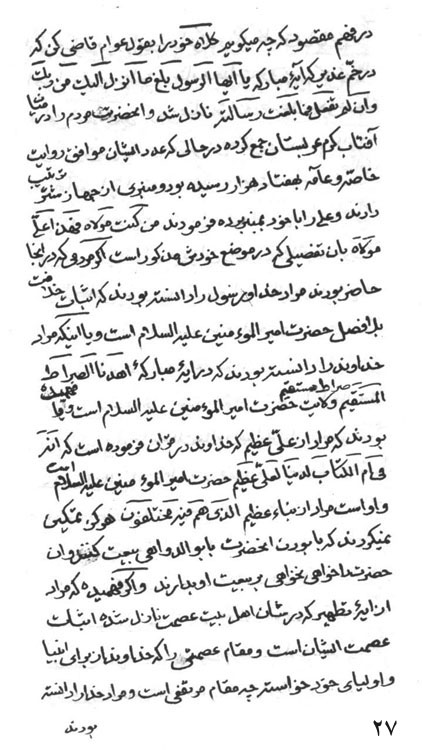 در فهم مقصود که چه میکوید کلاه خود را بقول عوام قاضی کن که
در خم غدیر که آیهٔ مبارکه یا ایها الرسول بلغ ما انزل الیک من ربک
وان لم تفعل فما بلغت رسالته نازل شد و انحضرت مردم را در
آفتاب کرم عربستان جمع کرده در حالی که عدد ایشان موافق روایت
خاصه و عامه بهفتاد هزار رسیده بود و منبری از جهاز شتر ترتیب
دارند و علی را با خود بمنبر برده فرمودند من کنت مولاه فهذا علی
مولاه بان تفصیلی که در موضع خودش مذکور است اکر مردمی که در انجا
حاضر بودند مراد خدا و رسول را دانسته بودند که اثبات خلافت
بلافصل حضرت امیر المؤمنین علیه السلام است و یا اینکه مراد
خداوند را دانسته بودند که در آیهٔ مبارکهٔ اهدنا الصراط
المستقیم صراط مستقیم ولایت حضرت امیر المؤمنین علیه السلام است و یا فهمیده
بودند که مراد از علی عظیم که خداوند در قران فرموده است که انه
فی ام الکتاب لدینا لعلی عظیم حضرت امیر المؤمنین علیه السلام است
و او است مراد از نباء عظیم الذی هم فیه مختلفون هرکز تمکین
نمیکردند که با بودن انحضرت با ابو بکر بیعت کنند و ان
حضرت را خواهی نخواهی بر بیعت او بدارند و اکر فهمیده که مراد
از ایهٔ تطهیر که در شان اهل بیت عصمت نازل شده اثبات
عصمت ایشان است و مقام عصمتی را که خداوند از برای انبیا
و اولیای خود خواسته چه مقام مرتفعی است و مراد خدا را دانسته
بودند
۲۷